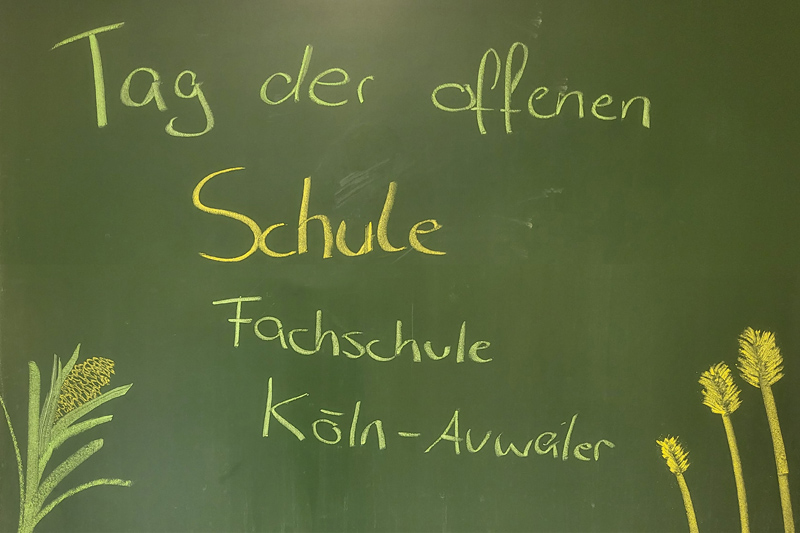 Tag der offenen
Schule
Fachschule
Köln-Auweiler